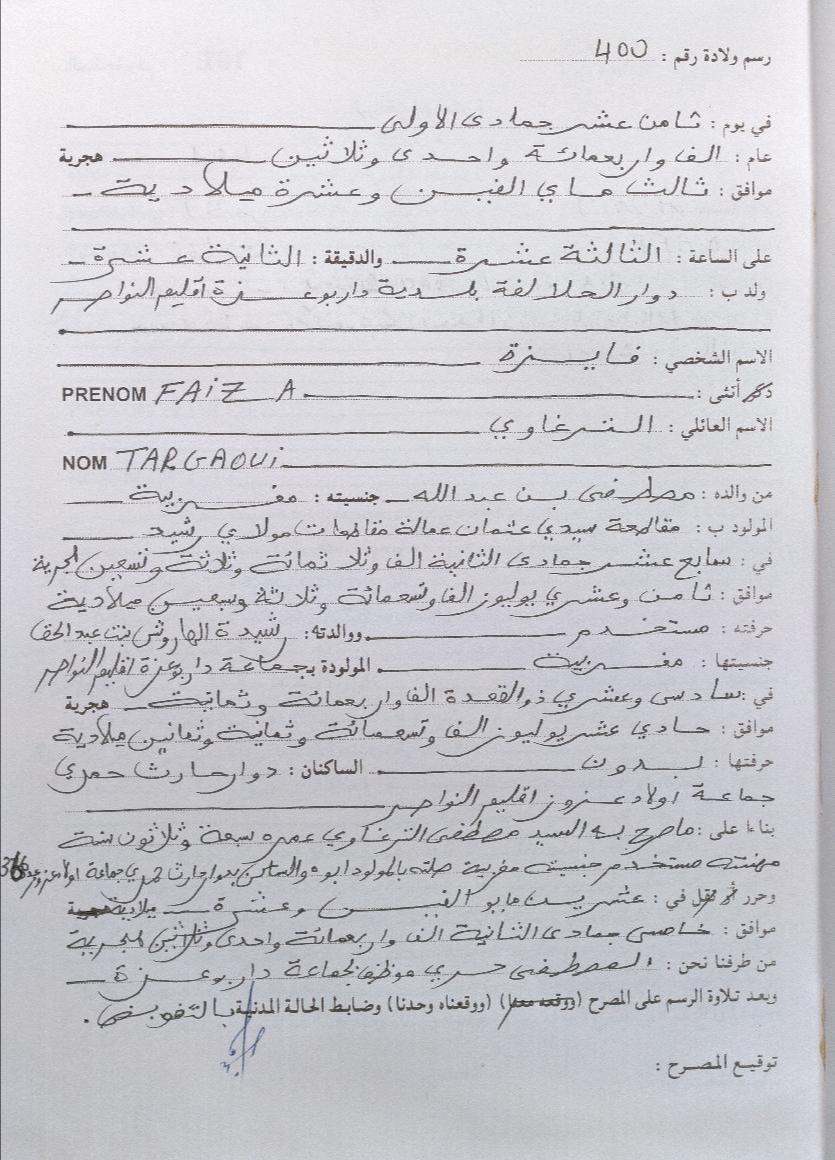 رسم ولادة رقم : 400
في يوم : ثامن عشر جمادى الأولى
عام : ألف وأربعمائة وإحدى وثلاثين هجرية
موافق : ثالث ماي ألفين وعشرة ميلادية
على الساعة : الثالثة عشرة والدقيقة : الثانية عشرة
ولد ب : دوار الحلالفة بلدية دار بوعزة اقليم النواصر
الاسم الشخصي : فايزة
ذكر أنثى : PRENOM FAiZA
الاسم العائلي : الترغاوي
NOM TARGAOUi
من والده : مصطفى بن عبد الله جنسيته : مغربية
المولود ب : مقاطعة سيدي عثمان عمالة مقاطعات مولاي رشيد
في : سابع عشر جمادى الثانية ألف وثلاثمائة وثلاثة وتسعين هجرية
موافق : ثامن وعشري يوليوز ألف وتسعمائة وثلاثة وسبعين ميلادية
حرفته : مستخدم ووالدته : رشيدة الهاروش بنت عبد الحق
جنسيتها : مغربية المولودة بجماعة دار بوعزة اقليم النواصر
في : سادس وعشري ذو القعدة ألف وأربعمائة وثمانية هجرية
موافق : حادي عشر يوليوز ألف وتسعمائة وثمانية وثمانين ميلادية
حرفتها : بدون الساكنان : دوار حارث حمري
جماعة اولاد عزوز اقليم النواصر
بناءا على : ماصرح به السيد مصطفى الترغاوي عمره سبعة وثلاثون سنة
مهنته مستخدم جنسيته مغربية صلته بالمولود ابوه والساكن بدوار حارث حمري جماعة اولاد عزوز
وحرر أو نقل في : عشرين مايو ألفين وعشرة ميلادية هجرية
موافق : خامس جمادى الثانية ألف وأربعمائة وإحدى وثلاثين هجرية
من طرفنا نحن : المصطفى حربي موظف بجماعة دار بوعزة
وبعد تلاوة الرسم على المصرح (ووقعه معنا) (ووقعناه وحدنا) وضابط الحالة المدنية بالتفويض.
توقيع المصرح :